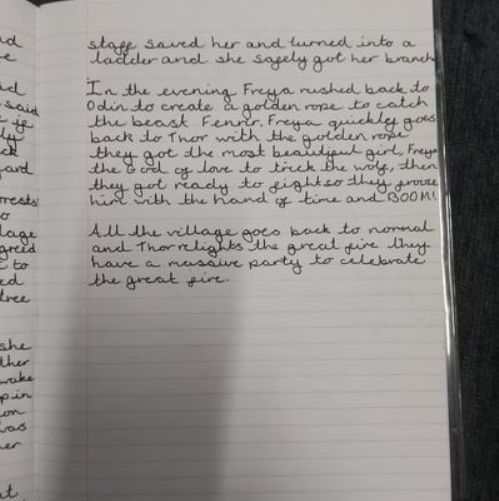 ad
e
ad
said
ly
ck
gard
rrests
o
lage
greed
t to
ed
tree
she
ther
wake
p in
on
was
her
at
staff saved her and turned into a
ladder and she safely got her branch
In the evening Freya rushed back to
Odin to create a golden rope to catch
the beast Fenrir. Freya quickly goes
back to Thor with the golden rope
they got the most beautiful girl, Freya
the God of love to trick the wolf, then
they got ready to fight so they froze
him with the hand of time and BOOM!
All the village goes back to normal
and Thor relights the great fire they
have a massive party to celebrate
the great fire.